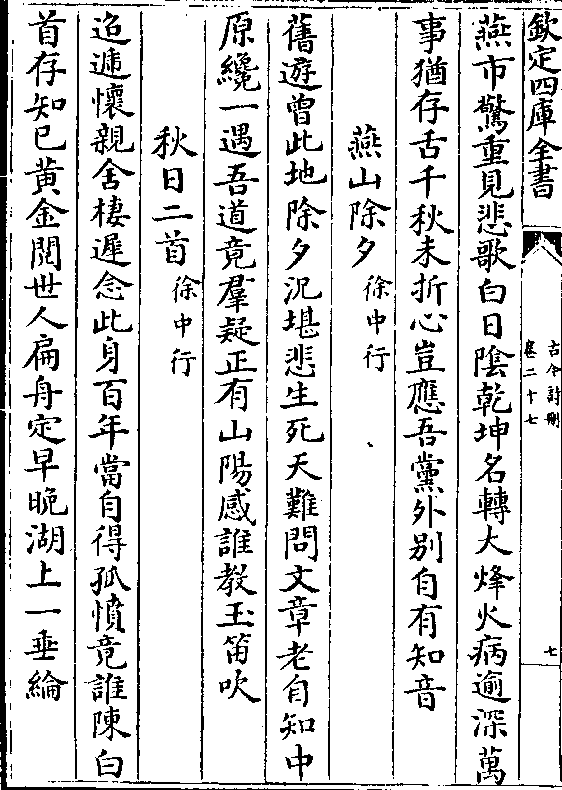 欽定四庫全書
古今詩刪
卷二十七
七
燕市驚重見悲歌白日陰乾坤名轉大烽火病逾深萬
事猶存舌千秋未折心豈應吾黨外別自有知音
燕山除夕徐中行
舊遊曾此地除夕況堪悲生死天難問文章老自知中
原纔一遇吾道竟羣疑正有山陽感誰教玉笛吹
秋日二首徐中行
迢遞懷親舍棲遲念此身百年當自得孤憤竟誰陳白
首存知已黃金閱世人扁舟定早晚湖上一垂綸